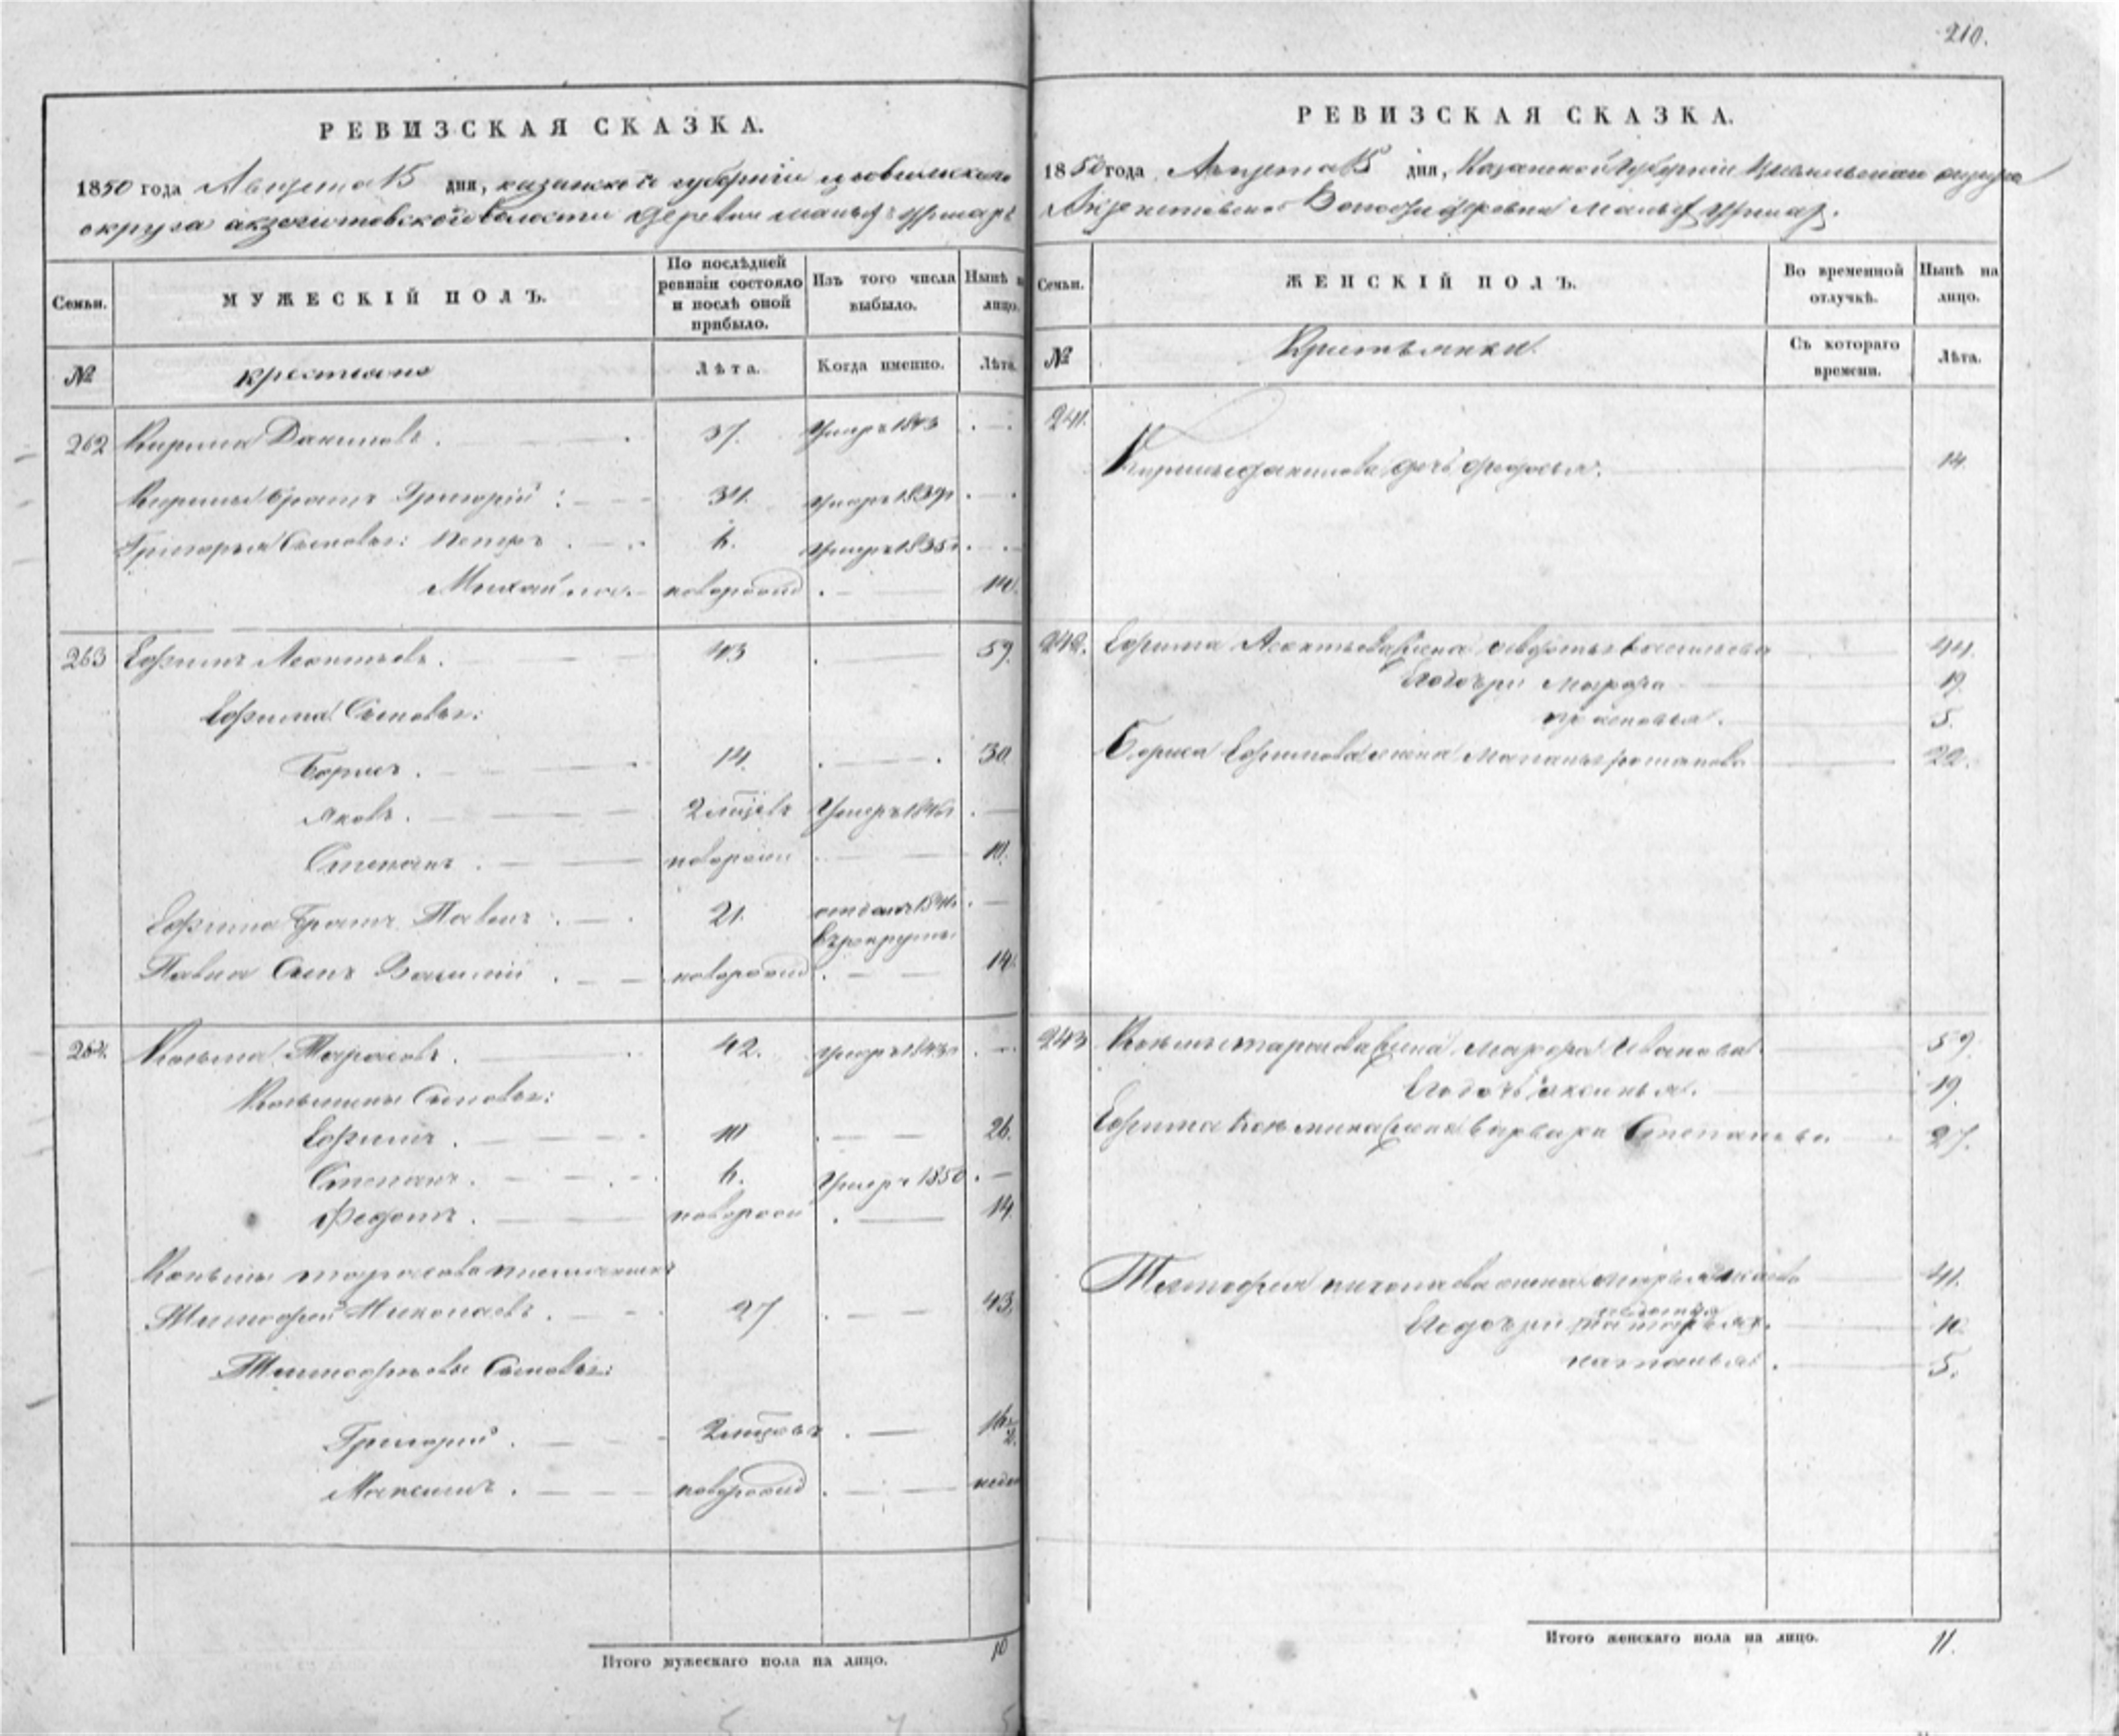 РЕВИЗСКАЯ СКАЗКА.
1850 года Августа 15 дня, казанской губернiи цывильскаго
округа волости деревни малыхъ
Семьи.
МУЖЕСКIЙ ПОЛЪ.
По послѣдней ревизiи состояло и послѣ оной прибыло.
Изъ того числа выбыло.
Нынѣ на лицо.
№
крестьяне
Лѣта.
Когда именно.
Лѣта.
262 Кирила Даниловъ. 37. Умеръ 1843
Кирилы братъ Григорiй: 34. умеръ 1839
Григорья Сыновья: Петръ 6. умеръ 1835
Михайло. новорожд 14.
263 Ефимъ Леонтьевъ. 43 59.
Ефима Сыновья:
Борисъ. 14. 30
Яковъ. 2 мцевъ Умеръ
Степанъ. новорож 10.
Ефима братъ Павелъ. 21. отданъ
в рекруты
Павла Сынъ Василiй. новорожд 14.
264. Козьма Тарасовъ. 42. умеръ
Козьмины Сыновья:
Ефимъ. 10 26.
Степанъ. 6. Умеръ 1850
Федотъ. новорож 14.
Козьмы тарасова племянникъ
Тимофей Николаевъ. 27 43.
Тимофеевы Сыновья:
Григорiй. 2 мцовъ 16
Максимъ. новорожд
Итого мужескаго пола на лицо. 10
210.
РЕВИЗСКАЯ СКАЗКА.
1850 года Августа 15 дня, Казанской Губернiи Цывильскаго округа
Волости деревни Малыхъ
Семьи.
ЖЕНСКIЙ ПОЛЪ.
Во временной отлучкѣ.
Нынѣ на лицо.
№
Крестьянки
Съ котораго времени.
Лѣта.
241.
Кирилы данилова дочь федосья. 14
242. Ефима Леонтьева жена васильева 44.
Его дочери марфа 19
прасковья. 5.
Бориса Ефимова жена романова 22.
243 Козьмы тарасова жена марфа Иванова 59.
Его дочь аксинья. 19.
Ефима Козмина жена варвара Степанова. 27.
Тимофея николаева жена марья 41.
Его дочери 10.
наталья. 5.
Итого женскаго пола на лицо. 11.